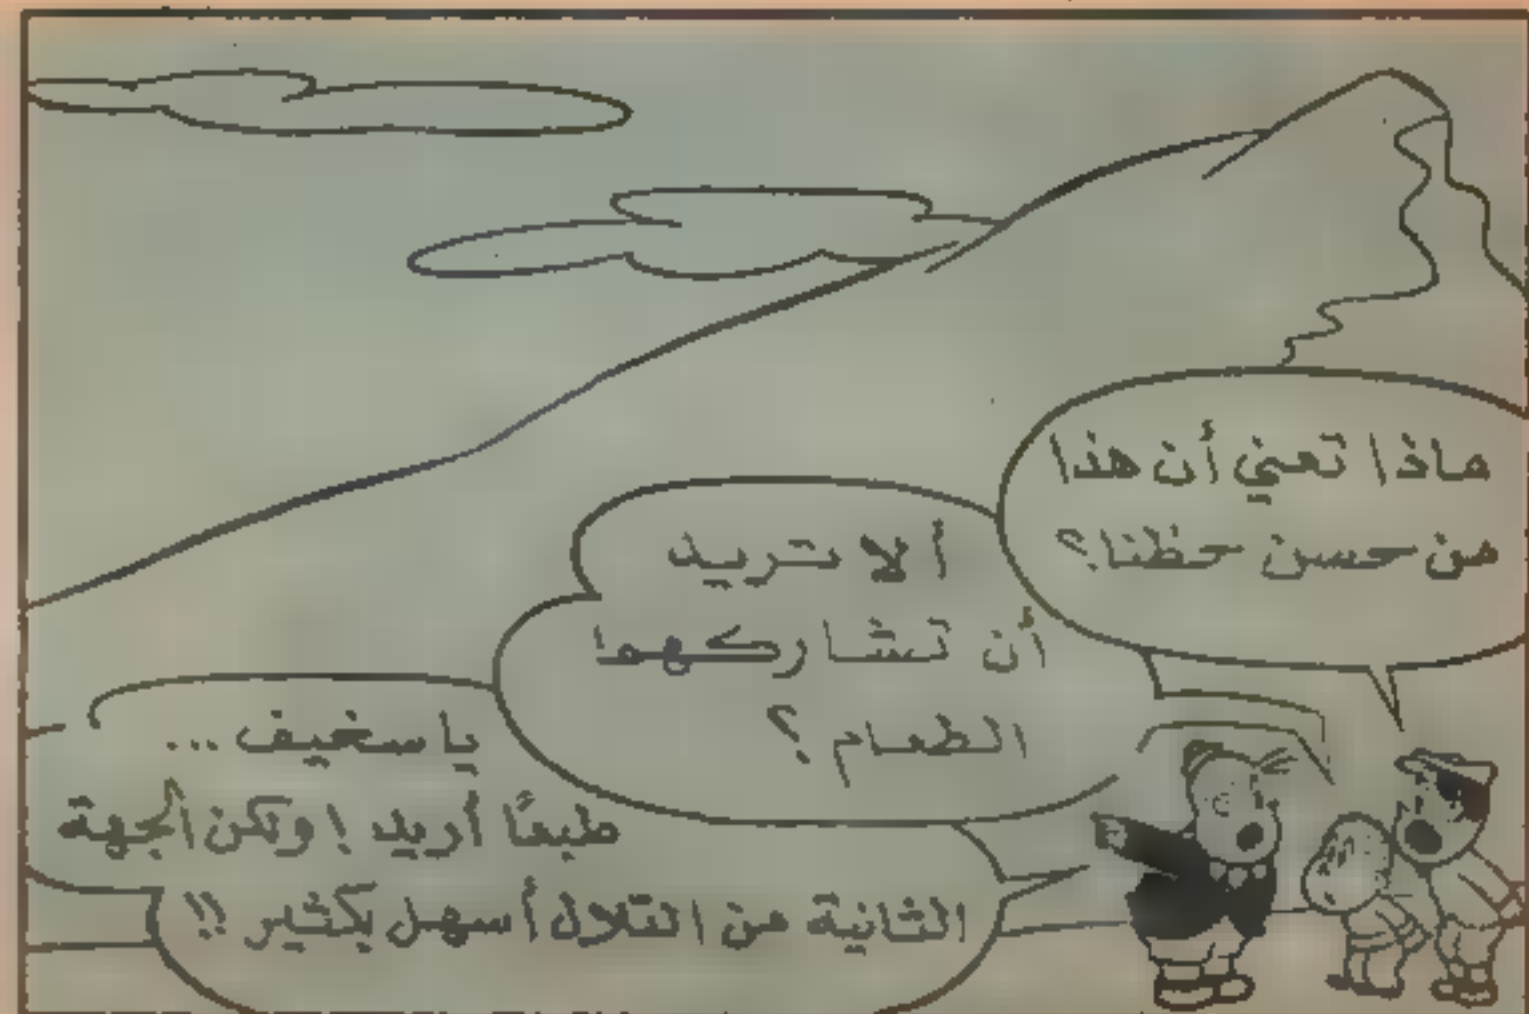 ماذا تعني أن هذا
من حسن حظنا؟
ألا تريد
أن تشاركهما
الطعام ؟
يا سخيف ...
طبعًا أريد ! ولكن ألجهة
الثانية من التلال أسهل بكثير !!